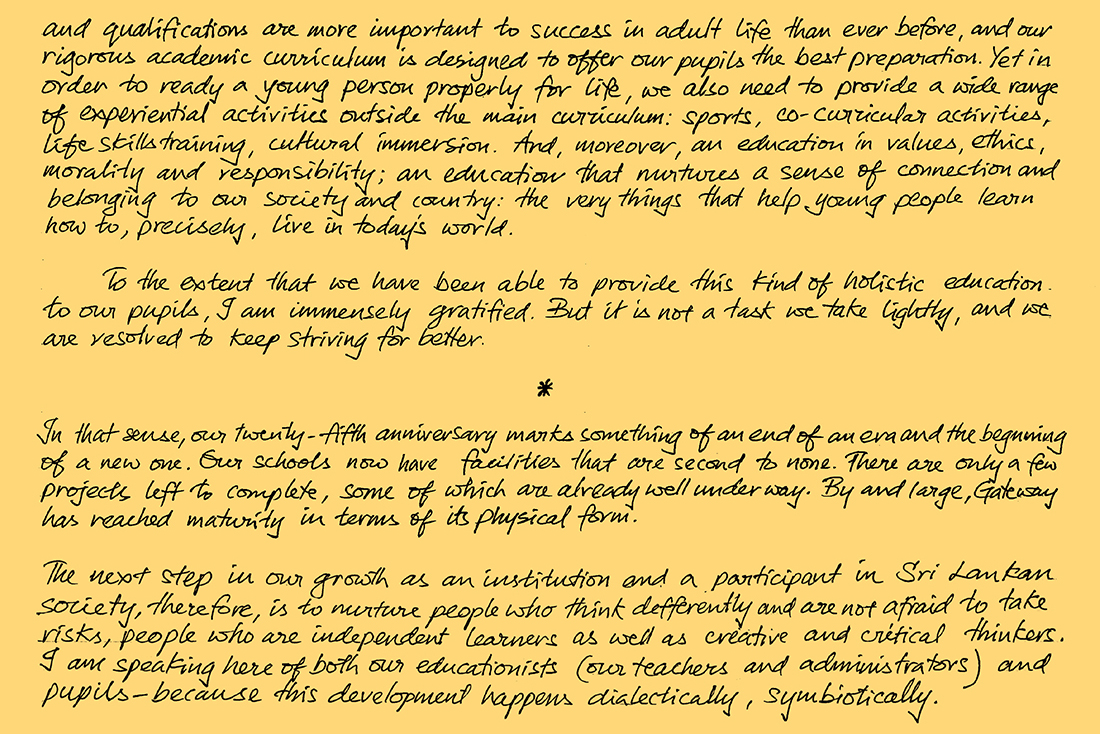 and qualifications are more important to success in adult life than ever before, and our
rigorous academic curriculum is designed to offer our pupils the best preparation. Yet in
order to ready a young person properly for life, we also need to provide a wide range
of experiential activities outside the main curriculum: sports, co-curricular activities,
life skills training, cultural immersion. And, moreover, an education in values, ethics,
morality and responsibility; an education that nurtures a sense of connection and
belonging to our society and country: the very things that help young people learn
how to, precisely, live in today's world.
To the extent that we have been able to provide this kind of holistic education
to our pupils, I am immensely gratified. But it is not a task we take lightly, and we
are resolved to keep striving for better.
*
In that sense, our twenty-fifth anniversary marks something of an end of an era and the beginning
of a new one. Our schools now have facilities that are second to none. There are only a few
projects left to complete, some of which are already well under way. By and large, Gateway
has reached maturity in terms of its physical form.
The next step in our growth as an institution and a participant in Sri Lankan
society, therefore, is to nurture people who think defferently and are not afraid to take
risks, people who are independent learners as well as creative and critical thinkers.
I am speaking here of both our educationists (our teachers and administrators) and
pupils–because this development happens dialectically, symbiotically.